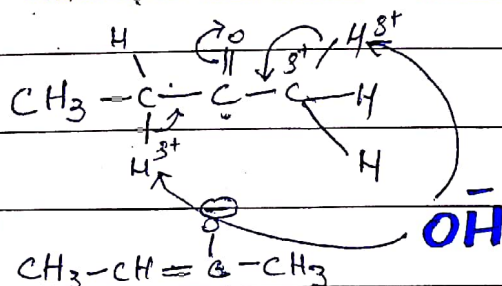 H O H δ+
||
CH₃ - C - C - C - H
δ+
H δ+ H
⊖
O OH⁻
CH₃-CH=C-CH₃